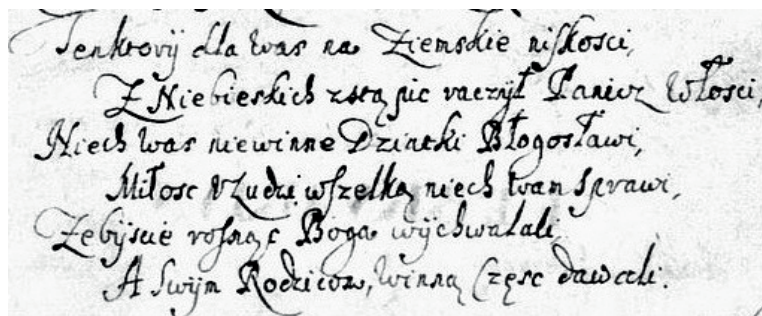 Tenktory dla was na Ziemskie niskosci,
Z Niebieskich zstąpic raczył Panicz Włosci,
Niech was niewinne Dziatki Błogosławi,
Miłosc v Ludzi wszelką niech wam sprawi,
Zebyscie rosnąc Boga wychwalali
A Swym Rodzicom, winną Częsc dawali.